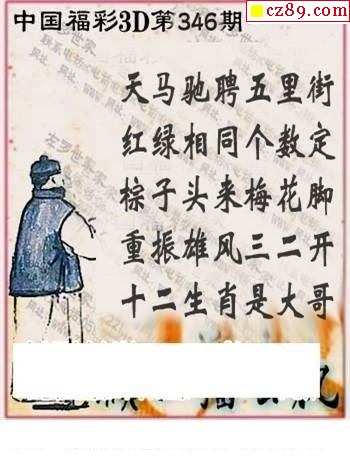 cz89.com
中国福彩3D第346期
天马驰聘五里街
红绿相同个数定
棕子头来梅花脚
重振雄风三二开
十二生肖是大哥